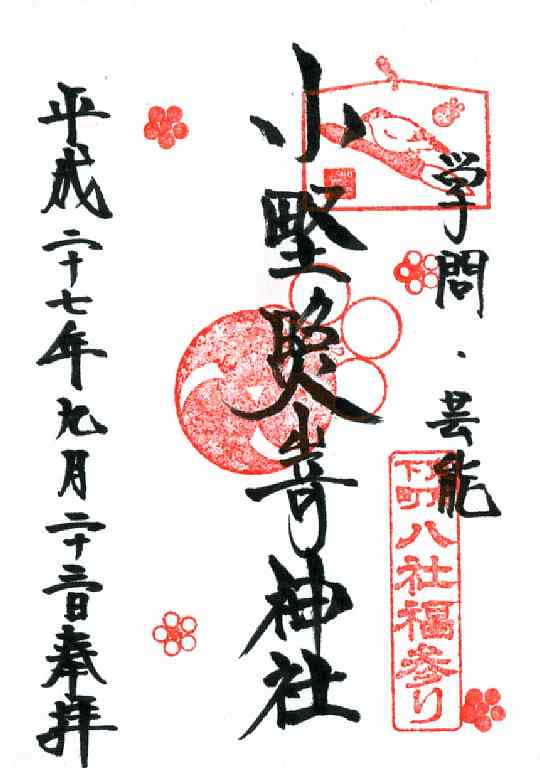 学問・芸能
下町八社福参り
小野照崎神社
平成二十七年九月二十三日奉拝